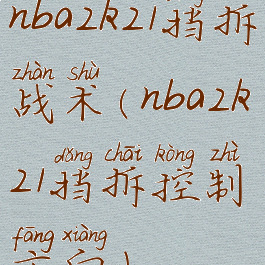 nba2k21挡拆
zhàn shù
战术(nba2k
dǎng chāi kòng zhì
21挡拆控制
fāng xiàng
方向)